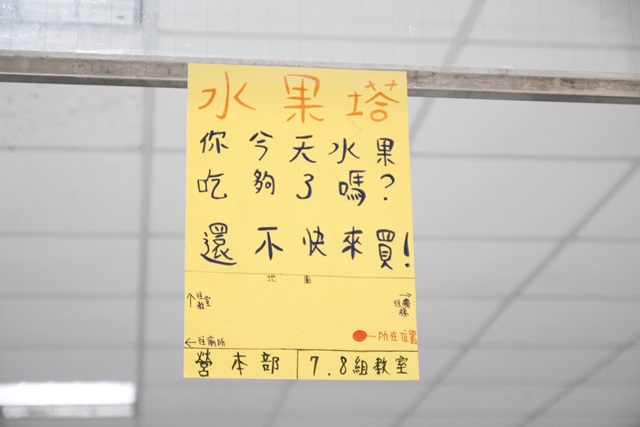 水果塔
你今天水果
吃夠了嗎?
還不快來買!
地圖
↑往教室
←往廁所
所在位置
營本部 7.8組教室